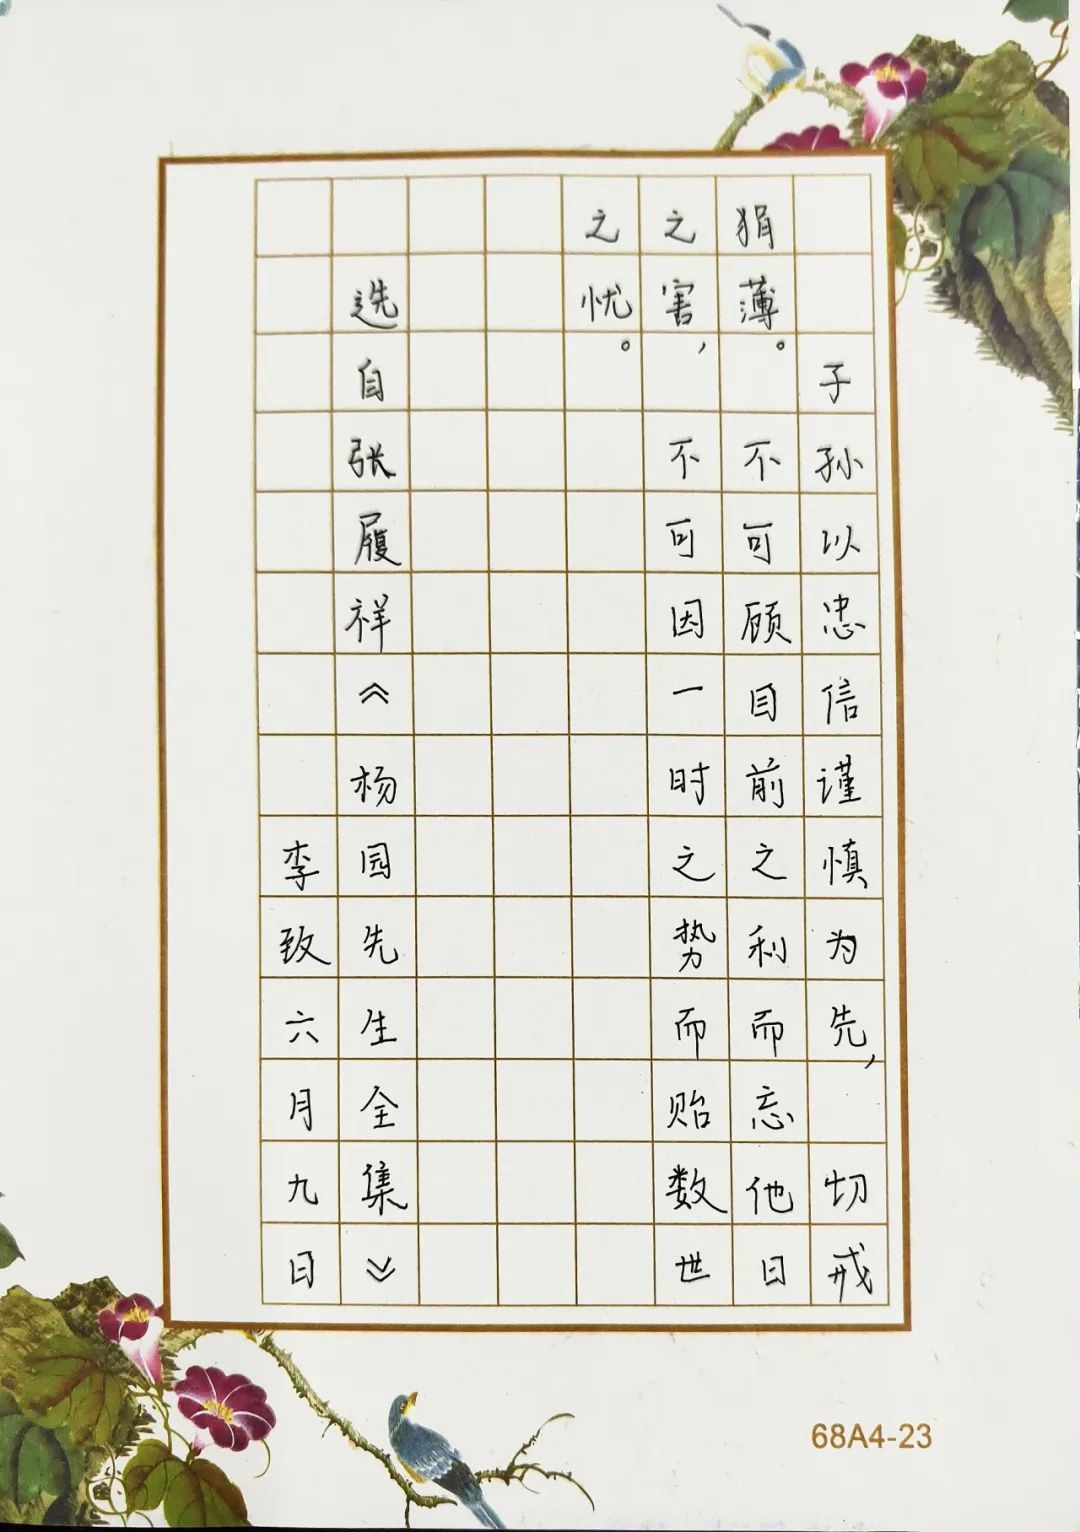 子孙以忠信谨慎为先，切戒
狷薄。不可顾目前之利而忘他日
之害，不可因一时之势而贻数世
之忧。
选自张履祥《杨园先生全集》
李致六月九日
68A4-23